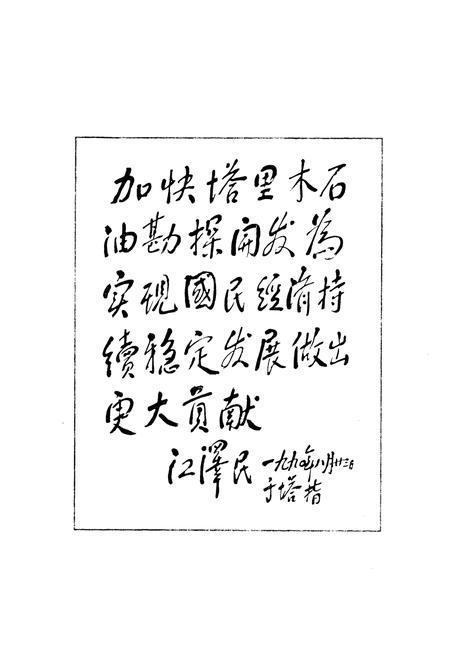 加快塔里木石
油勘探开发为
实现國民經济持
續稳定发展做出
更大贡献
江澤民 一九九〇年八月廿三日
于塔指